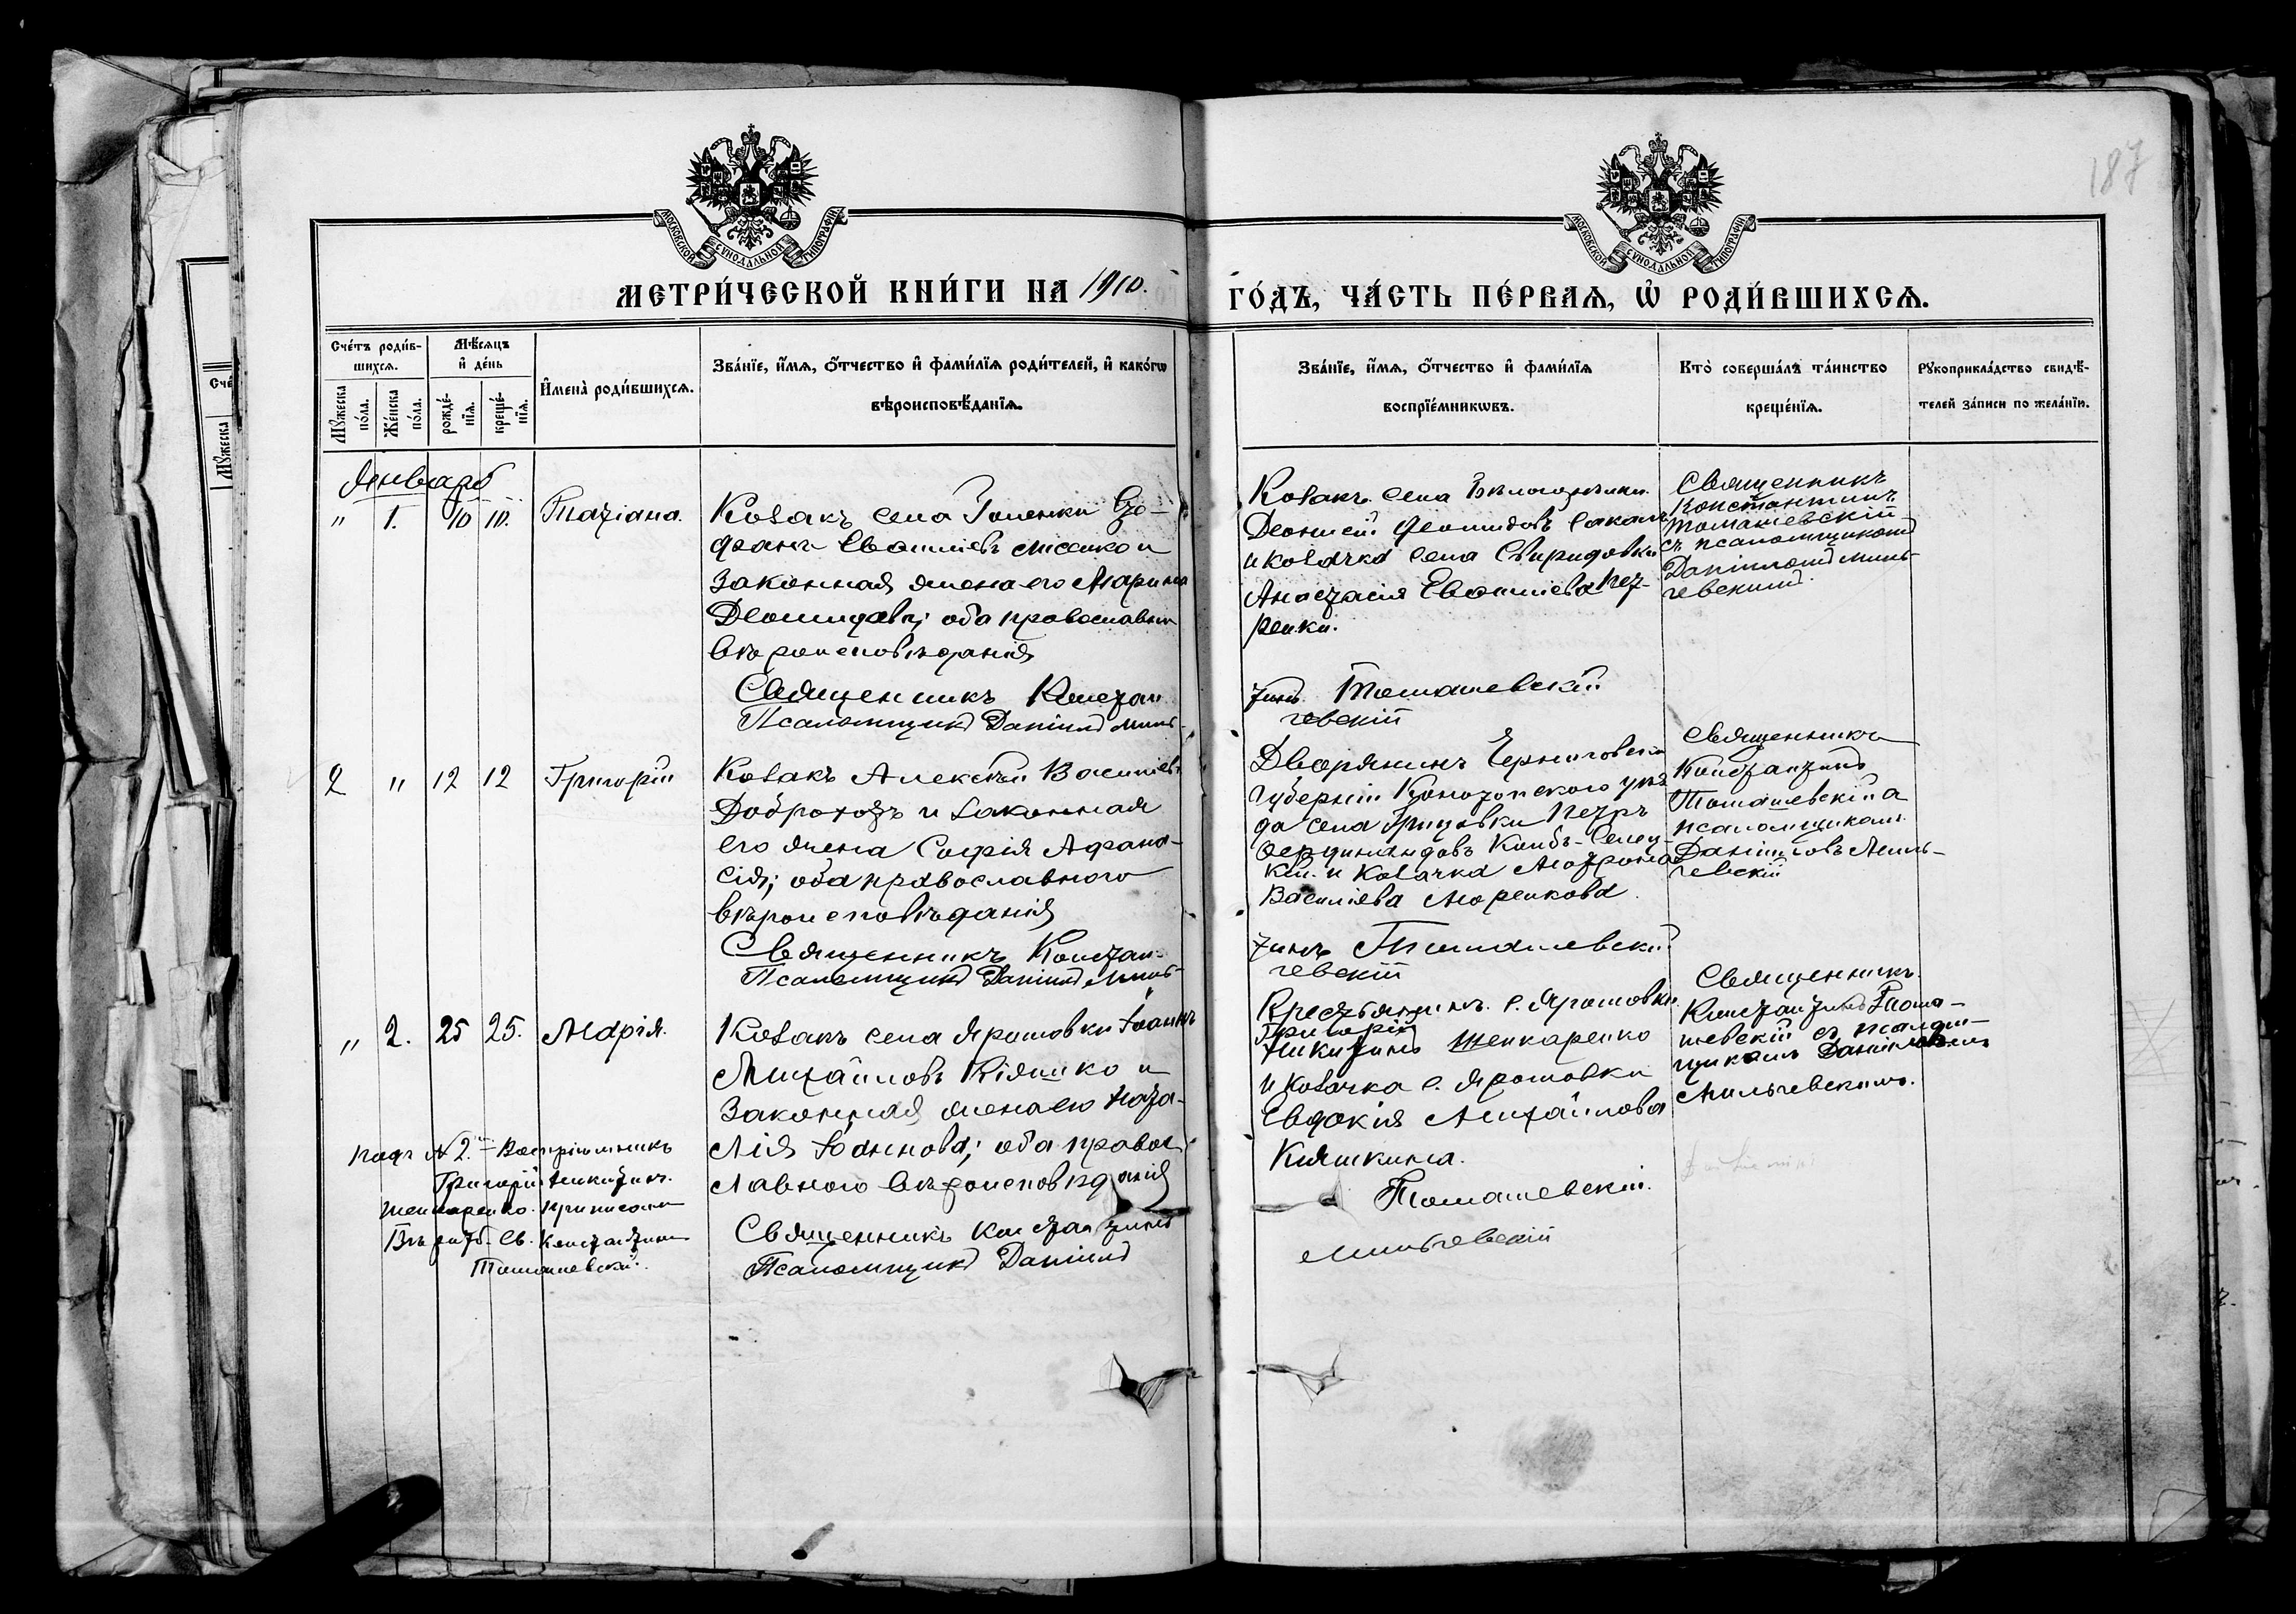 187
МОСКОВСКОЙ СѴНОДАЛЬНОЙ ТИПОГРАФІИ
МОСКОВСКОЙ СѴНОДАЛЬНОЙ ТИПОГРАФІИ
МЕТРИ́ЧЕСКОЙ КНИ́ГИ НА 1910.
ГО́ДЪ, ЧА́СТЬ ПЕ́РВАЯ, Ѡ҆ РОДИ́ВШИХСЯ.
Сче́тъ роди́в-
шихся.
Мꙋжеска
по́ла.
Же́нска
по́ла.
Мѣ́сяцъ
и҆ де́нь
рожде́-
нїя.
креще́-
нїя.
И҆мена̀ роди́вшихся.
Зва́нїе, и҆́мя, ѻ҆́тчество и҆ фами́лїя роди́телей, и҆ како́гѡ
вѣроисповѣ́данїя.
Зва́нїе, и҆́мя, ѻ҆́тчество и҆ фами́лїя
воспрїе́мникѡвъ.
Кто̀ соверша́лъ та́инство
креще́нїя.
Рꙋкоприкла́дство свидѣ́-
телей за́писи по жела́нїю.
Сче
Мꙋжеска
Январь
" 1. 10 10. Татіана.
Козакъ села Голенки
Мисско и
законная жена его Марина
Леонидова; оба православнаго
вѣроисповѣданія
Священникъ Констан-
Псаломщикъ Даніилъ Миль-
Козакъ села
Леонидовъ
и козачка села Свиридовки
Анастасія Пет-
ренки.
тинъ Томашевскій
чевскій
Священникъ
Константинъ
Томашевскій
съ псаломщикомъ
Даніиломъ Миль-
чевскимъ.
2 " 12 12 Григорій
Козакъ Алексѣй Василіевъ
Доброходъ и законная
его жена Софія Афана-
сія; оба православного
вѣроисповѣданія
Священникъ Констан-
Псаломщикъ Даніилъ Миль-
Дворянинъ Черниговской
губерніи Конотопского уѣз
да села Грицовки Петръ
Фердинандовъ
кій и козачка Матрона
Василіева Моренкова.
тинъ Томашевскій
чевскій
Священникъ
Константинъ
Томашевскій а
псаломщикомъ
Даніиловъ Миль-
чевскій
" 2. 25 25. Марія.
Козакъ села Ярошовки Іоаннъ
Михаиловъ Кіяшко и
законная жена его Ната-
лія Іоаннова; оба правос-
лавного вѣроисповѣданія
Священникъ Константинъ
Псаломщикъ Даніилъ
Крестьянинъ с. Ярошовки
Григорій
Никитинъ Шенкаренко
и козачка с. Ярошовки
Евдокія Михаилова
Кіяшкина.
Томашевскій.
Мильчевскій
Священникъ
Константинъ Тома-
шевскій съ псалом-
щикомъ Даніиломъ
Мильчевскимъ.
подъ № 2.й Воспріемникъ
Григорій Никитинъ
Шенкаренко приписанъ
Св. Константинъ
Томашевскій.